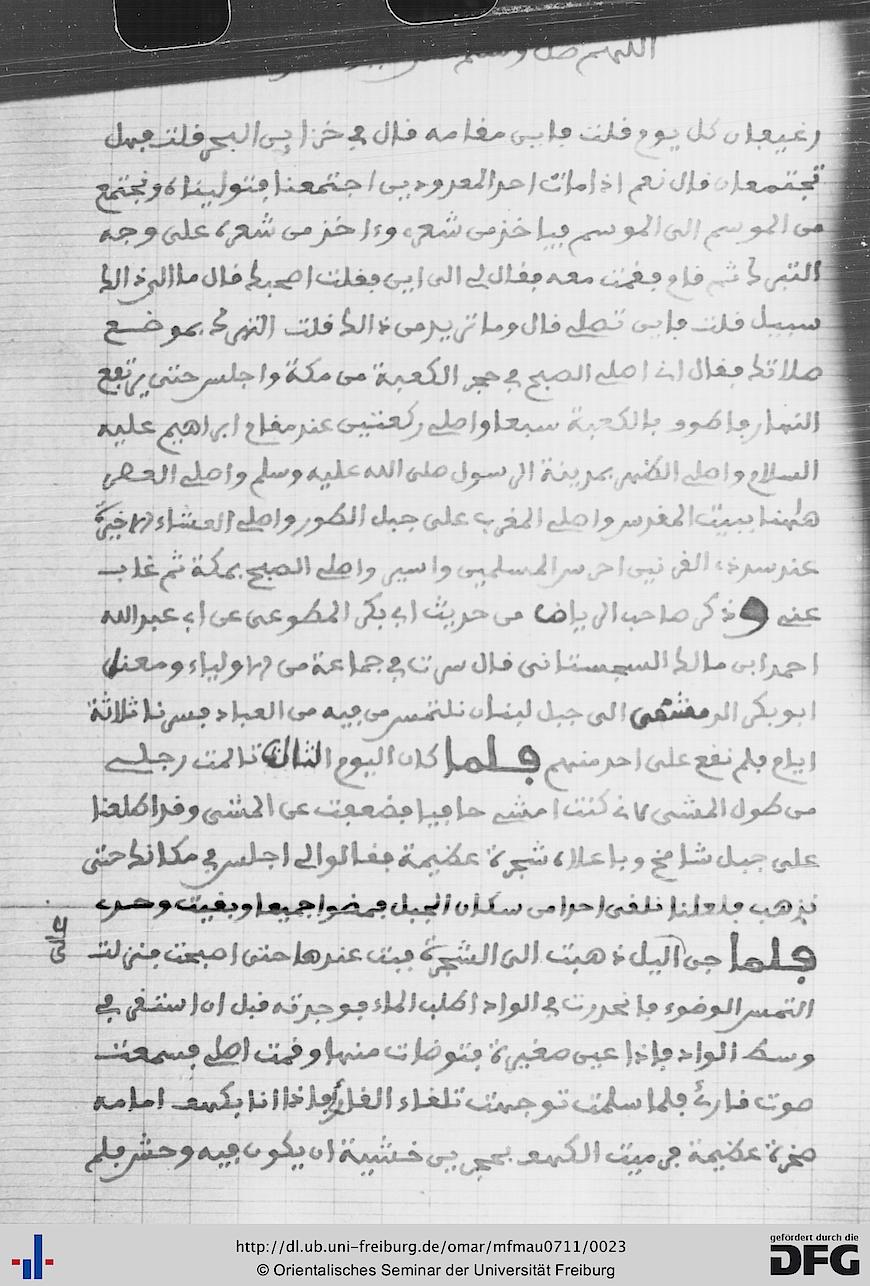 رغيفان كل يوم فلت فاين مقامه قال في خزاين البحر فلت فهل
تجتمعان قال نعم اذا مات احد المعدودين اجتمعنا فتولينا ونجتمع
من الموسم الى الموسم فياخذ من شعرى وءاخذ من شعره على وجه
التبرك ثم قام فقمت معه فقال لي الى اين فقلت اصحبك قال ما الى ذالك
سبيل فلت فاين تصلي قال وما تريد من ذالك فلت التبرك بموضع
صلاتك فقال اني اصلي الصبح في حجر الكعبة من مكة واجلس حتى يرتفع
النهار فاطوف بالكعبة سبعا واصلي ركعتين عند مقام ابراهيم عليه
السلام واصلي الظهر بمدينة الرسول صلى الله عليه وسلم واصلي العصر
هاهنا ببيت المقدس واصلي المغرب على جبل الطور واصلي العشاء الاخيرة
عند سد ذي القرنين احرس المسلمين واسير واصلي الصبح بمكة ثم غاب
عني وذكر صاحب الرياض من حديث ابي بكر المطوعى عن ابي عبد الله
احمد ابن مالك السجستاني قال سرت في جماعة من الاولياء ومعنا
ابو بكر الدمشقى الى جبل لبنان نلتمس من فيه من العباد فسرنا ثلاثة
ايام فلم نقع على احد منهم فلما كان اليوم الثالث تالمت رجلي
من طول المشى لاني كنت امشي حافيا فضعفت عن المشى وقد اطلعنا
على جبل شامخ وباعلاه شجرة عظيمة فقالوا لي اجلس في مكانك حتى
نذهب فلعلنا نلقى احدا من سكان الجبل فمضوا جميعا وبقيت وحدى
فلما جن اليل ذهبت الى الشجرة فبت عندها حتى اصبحت فنزلت
التمس الوضوء فانحدرت في الواد اطلب الماء فوجدته قبل ان استقى في
وسط الواد فاذا عين صغيرة فتوضات منها وقمت اصلي فسمعت
صوت قارئ فلما سلمت توجهت تلقاء القارئ فاذا انا بكهف امامه
صخرة عظيمة فرميت الكهف بحجرين خشية ان يكون فيه وحش فلم
http://dl.ub.uni-freiburg.de/omar/mfmau0711/0023
© Orientalisches Seminar der Universität Freiburg
gefördert durch die
DFG